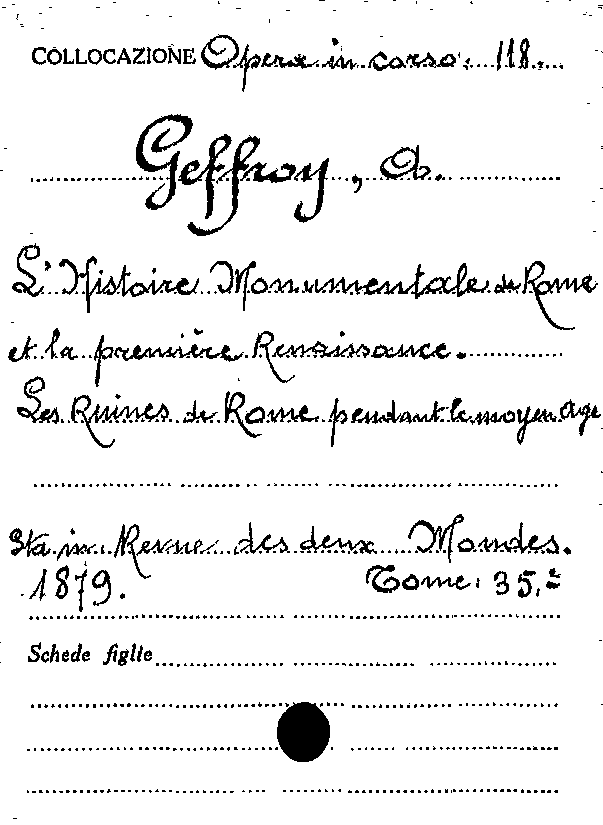 COLLOCAZIONE Opera in corso. 118.
Geffroy, A.
L'Histoire Monumentale de Rome
et la première Renaissance.
Les Ruines de Rome pendant le moyen age
Sta in Revue des deux Mondes.
1879. Tome 35.
Schede figlie